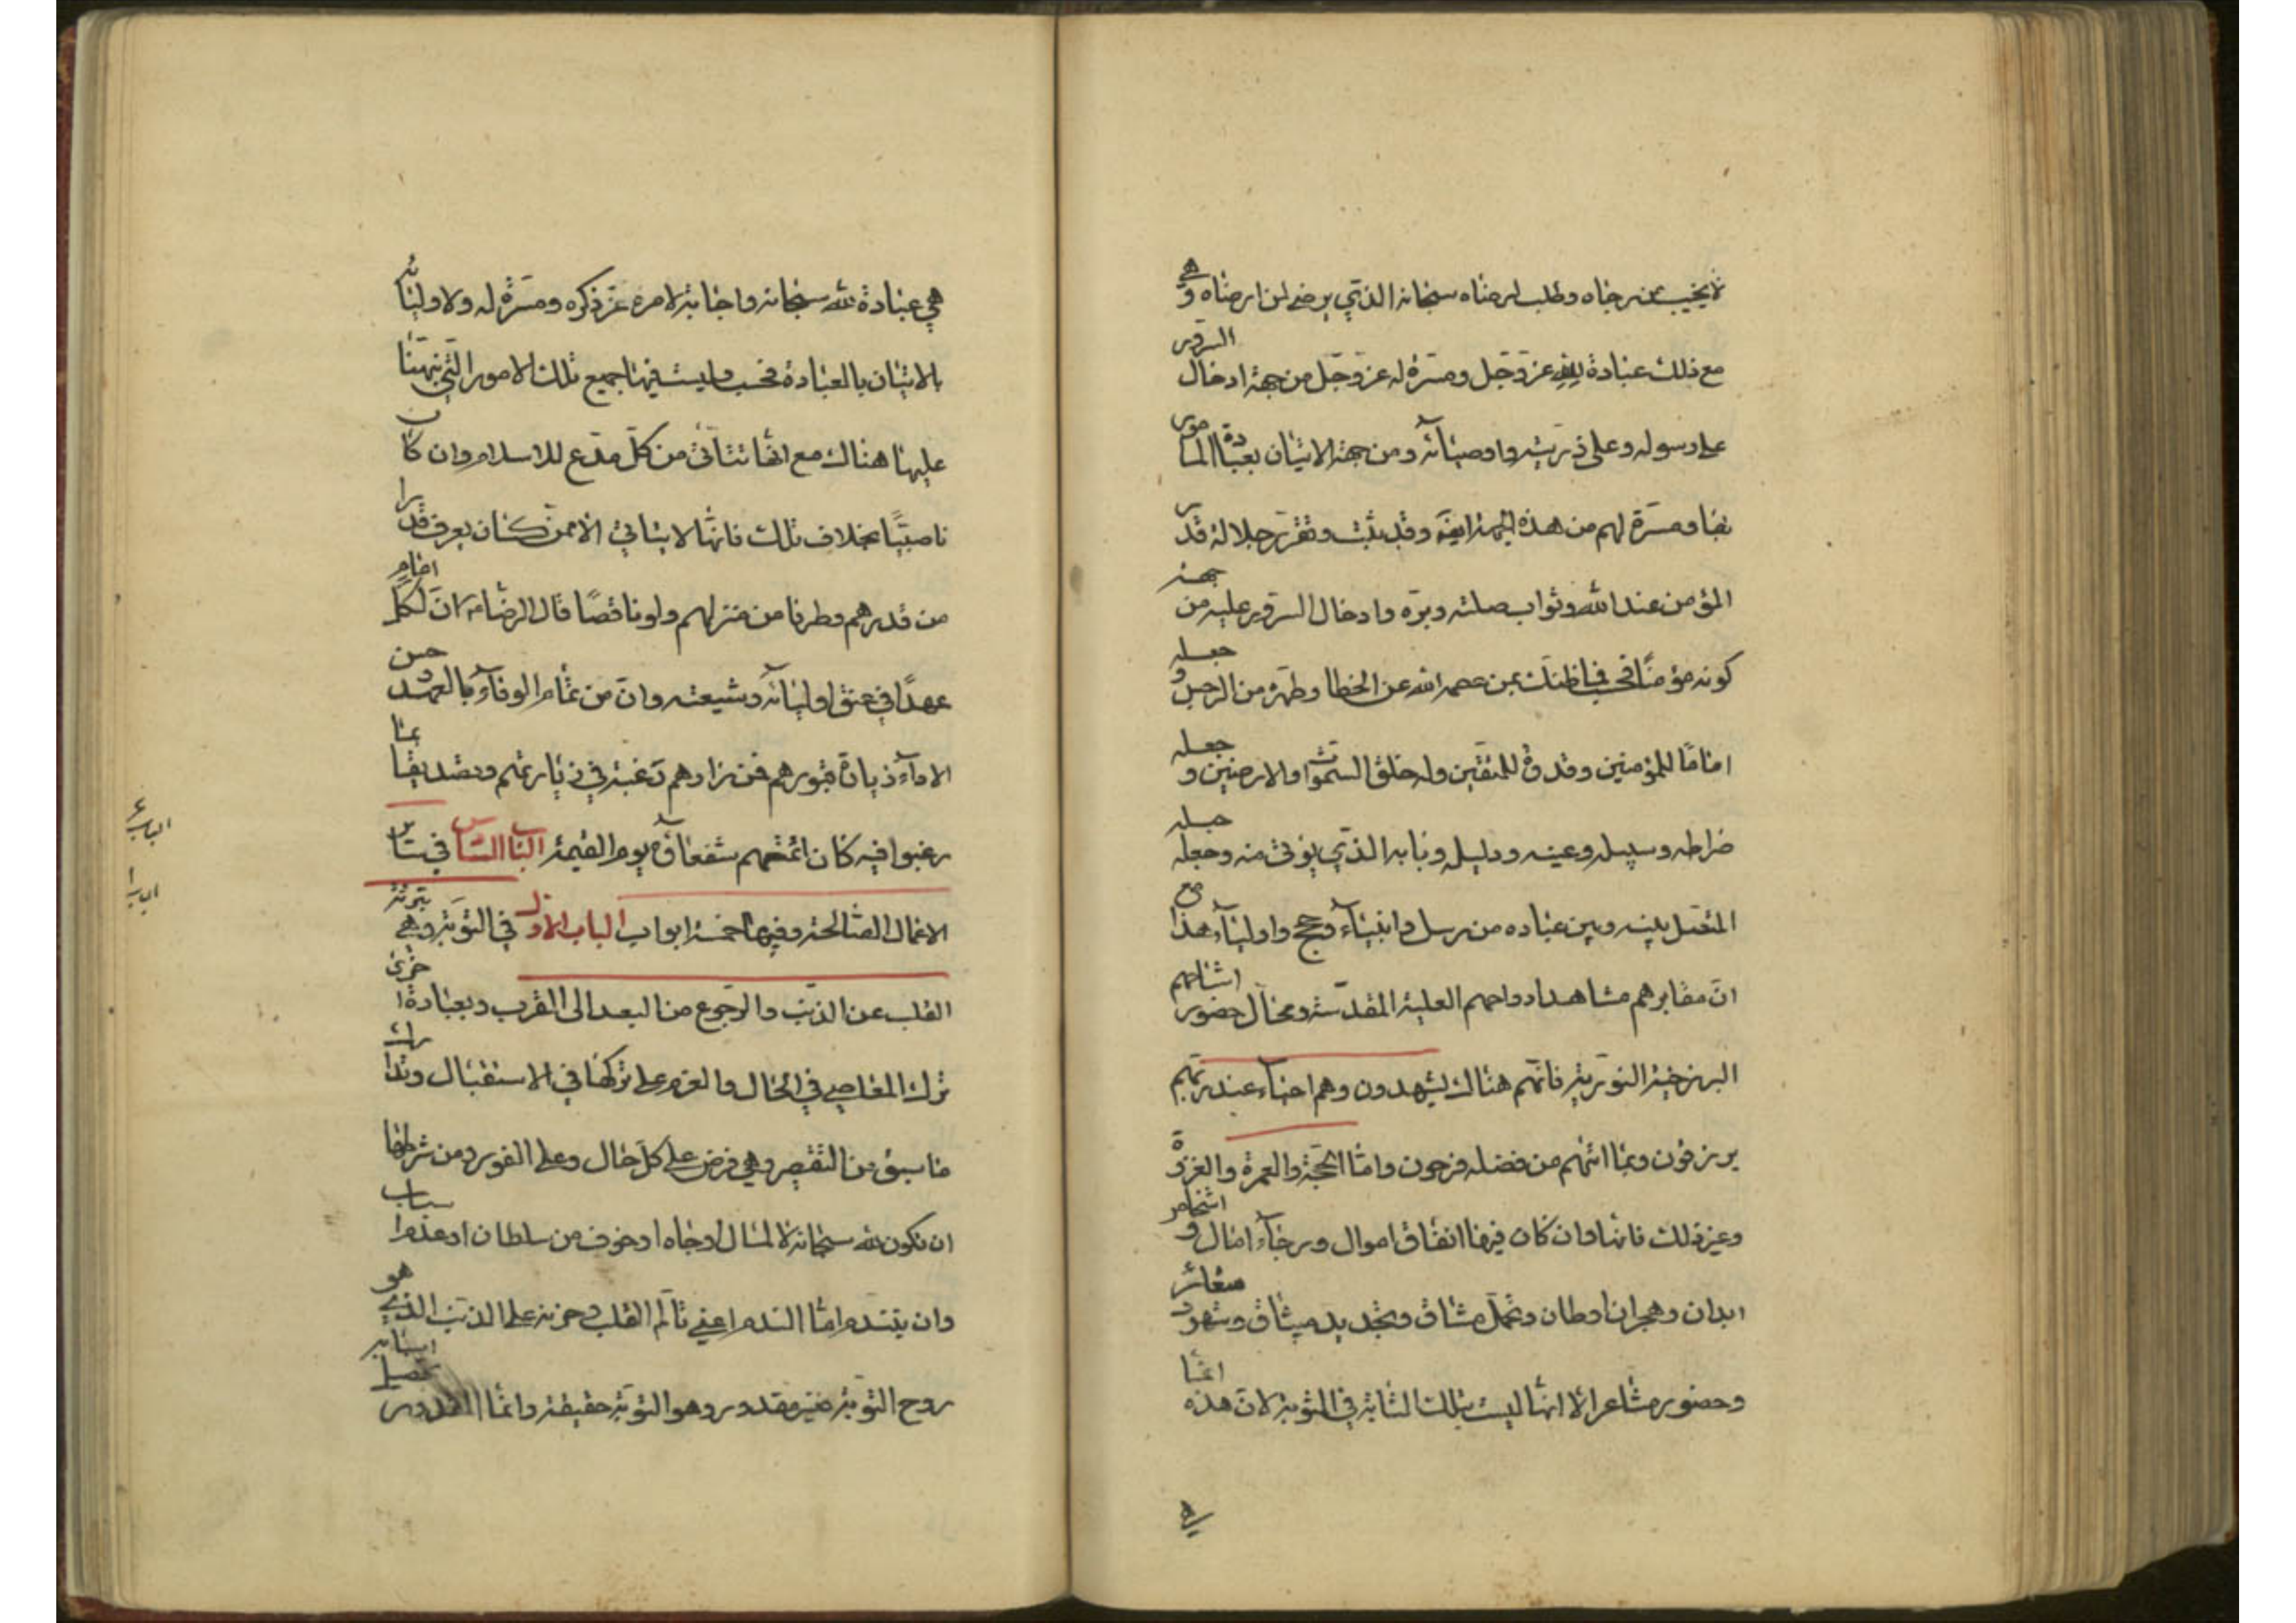 لا يخيب من رجاه وطلب لرضاه سبحانه الذي يرضى لمن ارضاه وهي
مع ذلك عبادة لله عز وجل ومسرة له عز وجل من جهة ادخال السرور
على رسوله وعلى ذريته واوصيائه ومن جهة الاتيان بعبادة المامور
بها ومسرة لهم من هذه الجهة ايضا وقد يثبت وتقرر جلالة قدر
المؤمن عند الله وثواب صلته وبره وادخال السرور عليه من جهة
كونه مؤمنا فحسب فما ظنك بمن عصمه الله عن الخطا وطهره من الرجس وجعله
اماما للمؤمنين وقدوة للمتقين وله خلق السموات والارضين وجعله
صراطه وسبيله وعينه ودليله وبابه الذي يؤتى منه وجعله حبله
المتصل بينه وبين عباده من رسل وانبياء وحجج واولياء هذا مع
ان مقابرهم مشاهد ارواحهم العلية المقدسة ومحال حضور اشباحهم
البرزخية النورية فانهم هناك يشهدون وهم احياء عند ربهم
يرزقون وبما اتيهم من فضله فرحون واما الحجة والعمرة والغزوة
وغير ذلك فانها وان كان فيها انفاق اموال ورجاء امال واشخاص
ابدان وهجران اوطان وتحمل مشاق وتجديد ميثاق وشهود شعائر
وحضور مشاعر الا انها ليست بتلك المثابة في المثوبة لان هذه انما
هي
هي عبادة لله سبحانه واجابة لامره عز ذكره ومسرة له ولاوليائه
بالاتيان بالعبادة فحسب وليست فيها جميع تلك الامور التي نبهنا
عليها هناك مع انها تتاتى من كل مدع للاسلام وان كان
ناصبيا بخلاف تلك فانها لا يتاتى الا ممن كان يعرف قدرا
من قدرهم وطرفا من منزلهم ولو ناقصا قال الرضا ان لكل امام
عهدا في عنق اوليائه وشيعته وان من تمام الوفاء بالعهد وحسن
الاداء زيارة قبورهم فمن زارهم رغبة في زيارتهم وتصديقا بما
رغبوا فيه كان ائمتهم شفعاؤه يوم القيمة الباب السادس في سائر
الاعمال الصالحة وفيها خمسة ابواب الباب الاول في التوبة وهي تنزيه
القلب عن الذنب والرجوع من البعد الى القرب وبعبادة اخرى
ترك المعاصي في الحال والعزم على تركها في الاستقبال وتدارك
ما سبق من التقصير وهي فرض على كل حال وعلى الفور ومن شرطها
ان تكون لله سبحانه لا لمال او جاه او خوف من سلطان او عدم اسباب
وان يتندم اما الندم اعني تالم القلب وحزنه على الذنب الذي هو
روح التوبة فغير مقدور وهو التوبة حقيقة وانما المقدور تحصيل اسبابه
الباب ٤
الباب ١